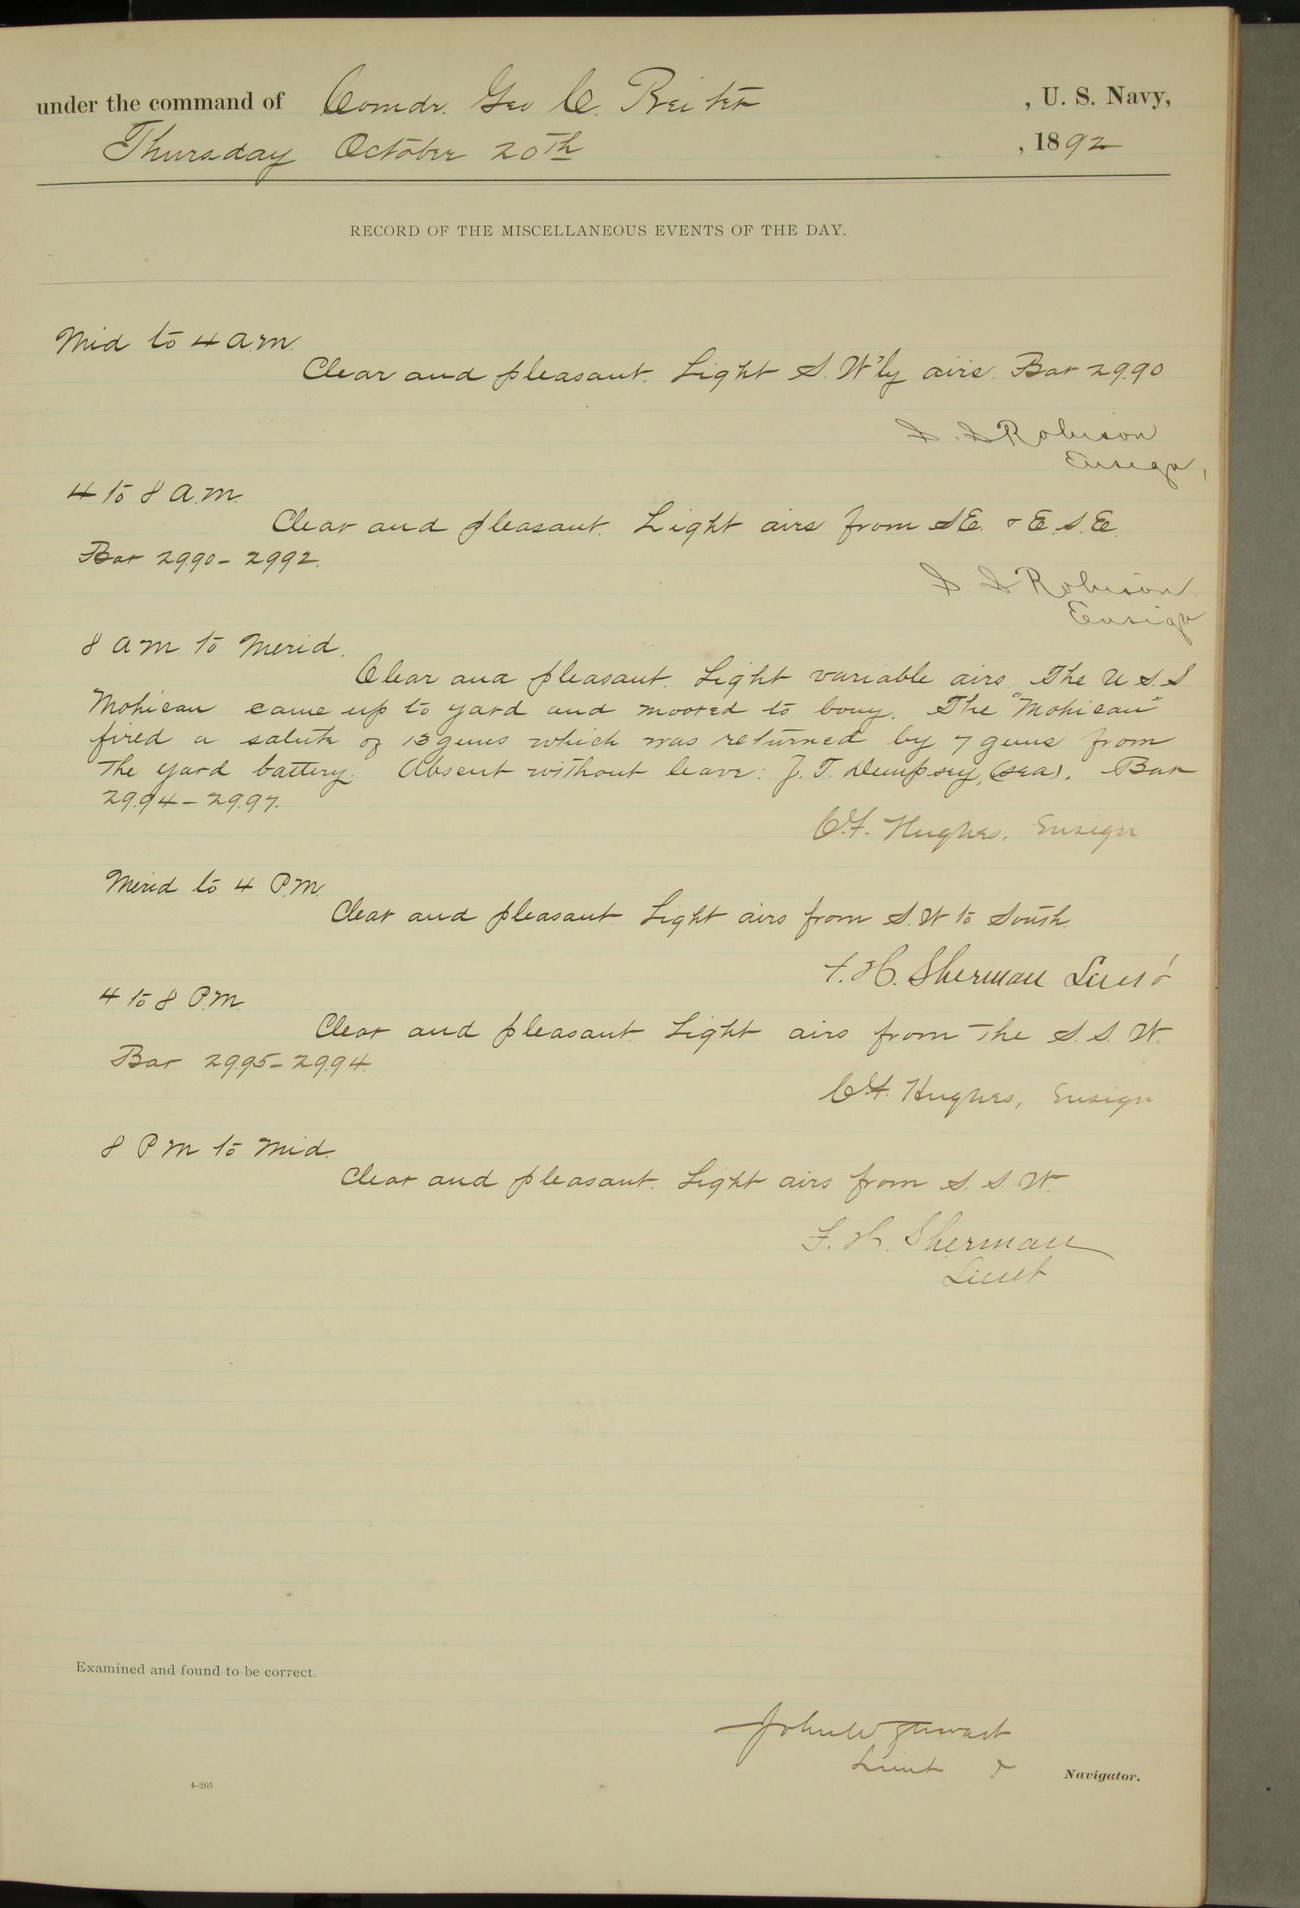 under the command of Comdr. Geo C. Reiter, U. S. Navy,
Thursday October 20th, 1892
RECORD OF THE MISCELLANEOUS EVENTS OF THE DAY.
Mid to 4 a.m.
Clear and pleasant. Light S. W'ly airs. Bar 29.90
S. S. Robison
Ensign,
4 to 8 a.m.
Clear and pleasant. Light airs from SE. & E.S.E.
Bar 29.90 - 29.92.
S. S. Robison
Ensign
8 am to Merid.
Clear and pleasant. Light variable airs. The U.S.S
Mohican came up to yard and moored to bouy. The "Mohican"
fired a salute of 13 guns which was returned by 7 guns from
the yard battery. Absent without leave: J. T. Dempsey, (sea). Bar
29.94 - 29.97.
C.F. Hughes, Ensign
Merid to 4 P.M.
Clear and pleasant Light airs from S. W to South.
F. H. Sherman Lieut
4 to 8 P.M.
Clear and pleasant. Light airs from the S. S. W.
Bar 29.95 - 29.94
C.F. Hughes, Ensign
8 PM to Mid.
Clear and pleasant. Light airs from S. S. W.
F. H. Sherman
Lieut
Examined and found to be correct.
John W Stewart
Lieut & Navigator.
4-265